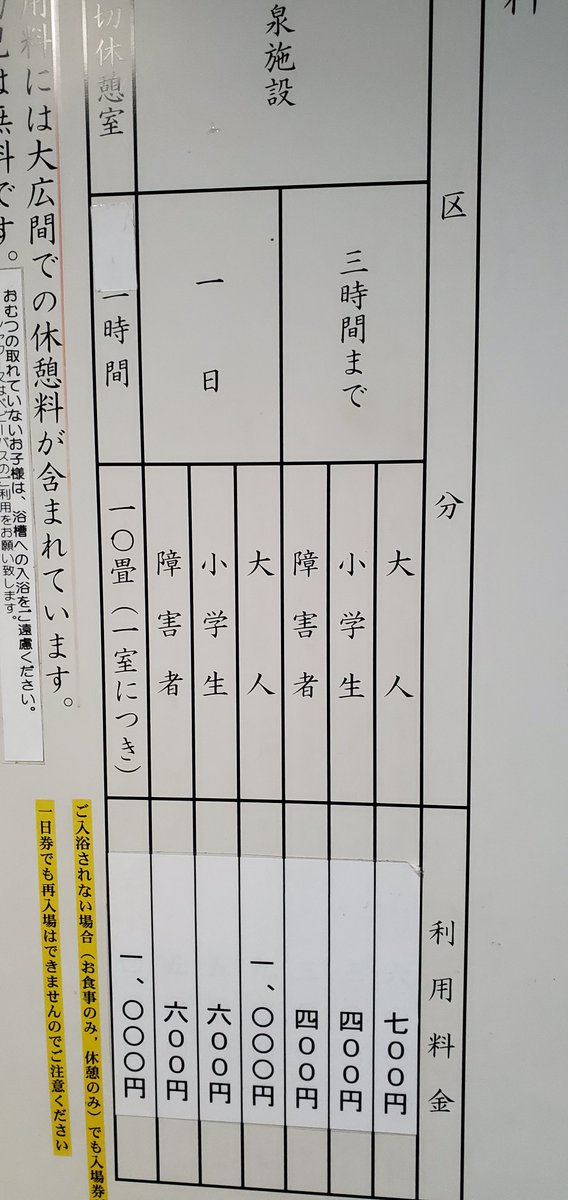 料
区分
利用料金
泉施設
三時間まで
大人
七〇〇円
小学生
四〇〇円
障害者
四〇〇円
一日
大人
一、〇〇〇円
小学生
六〇〇円
障害者
六〇〇円
切休憩室
一時間
一〇畳（一室につき）
一、〇〇〇円
用料には大広間での休憩料が含まれています。
は無料です。
おむつの取れていないお子様は、浴槽への入浴をご遠慮ください。
ベビーバスのご利用をお願い致します。
ご入浴されない場合（お食事のみ，休憩のみ）でも入場券
一日券でも再入場はできませんのでご注意ください